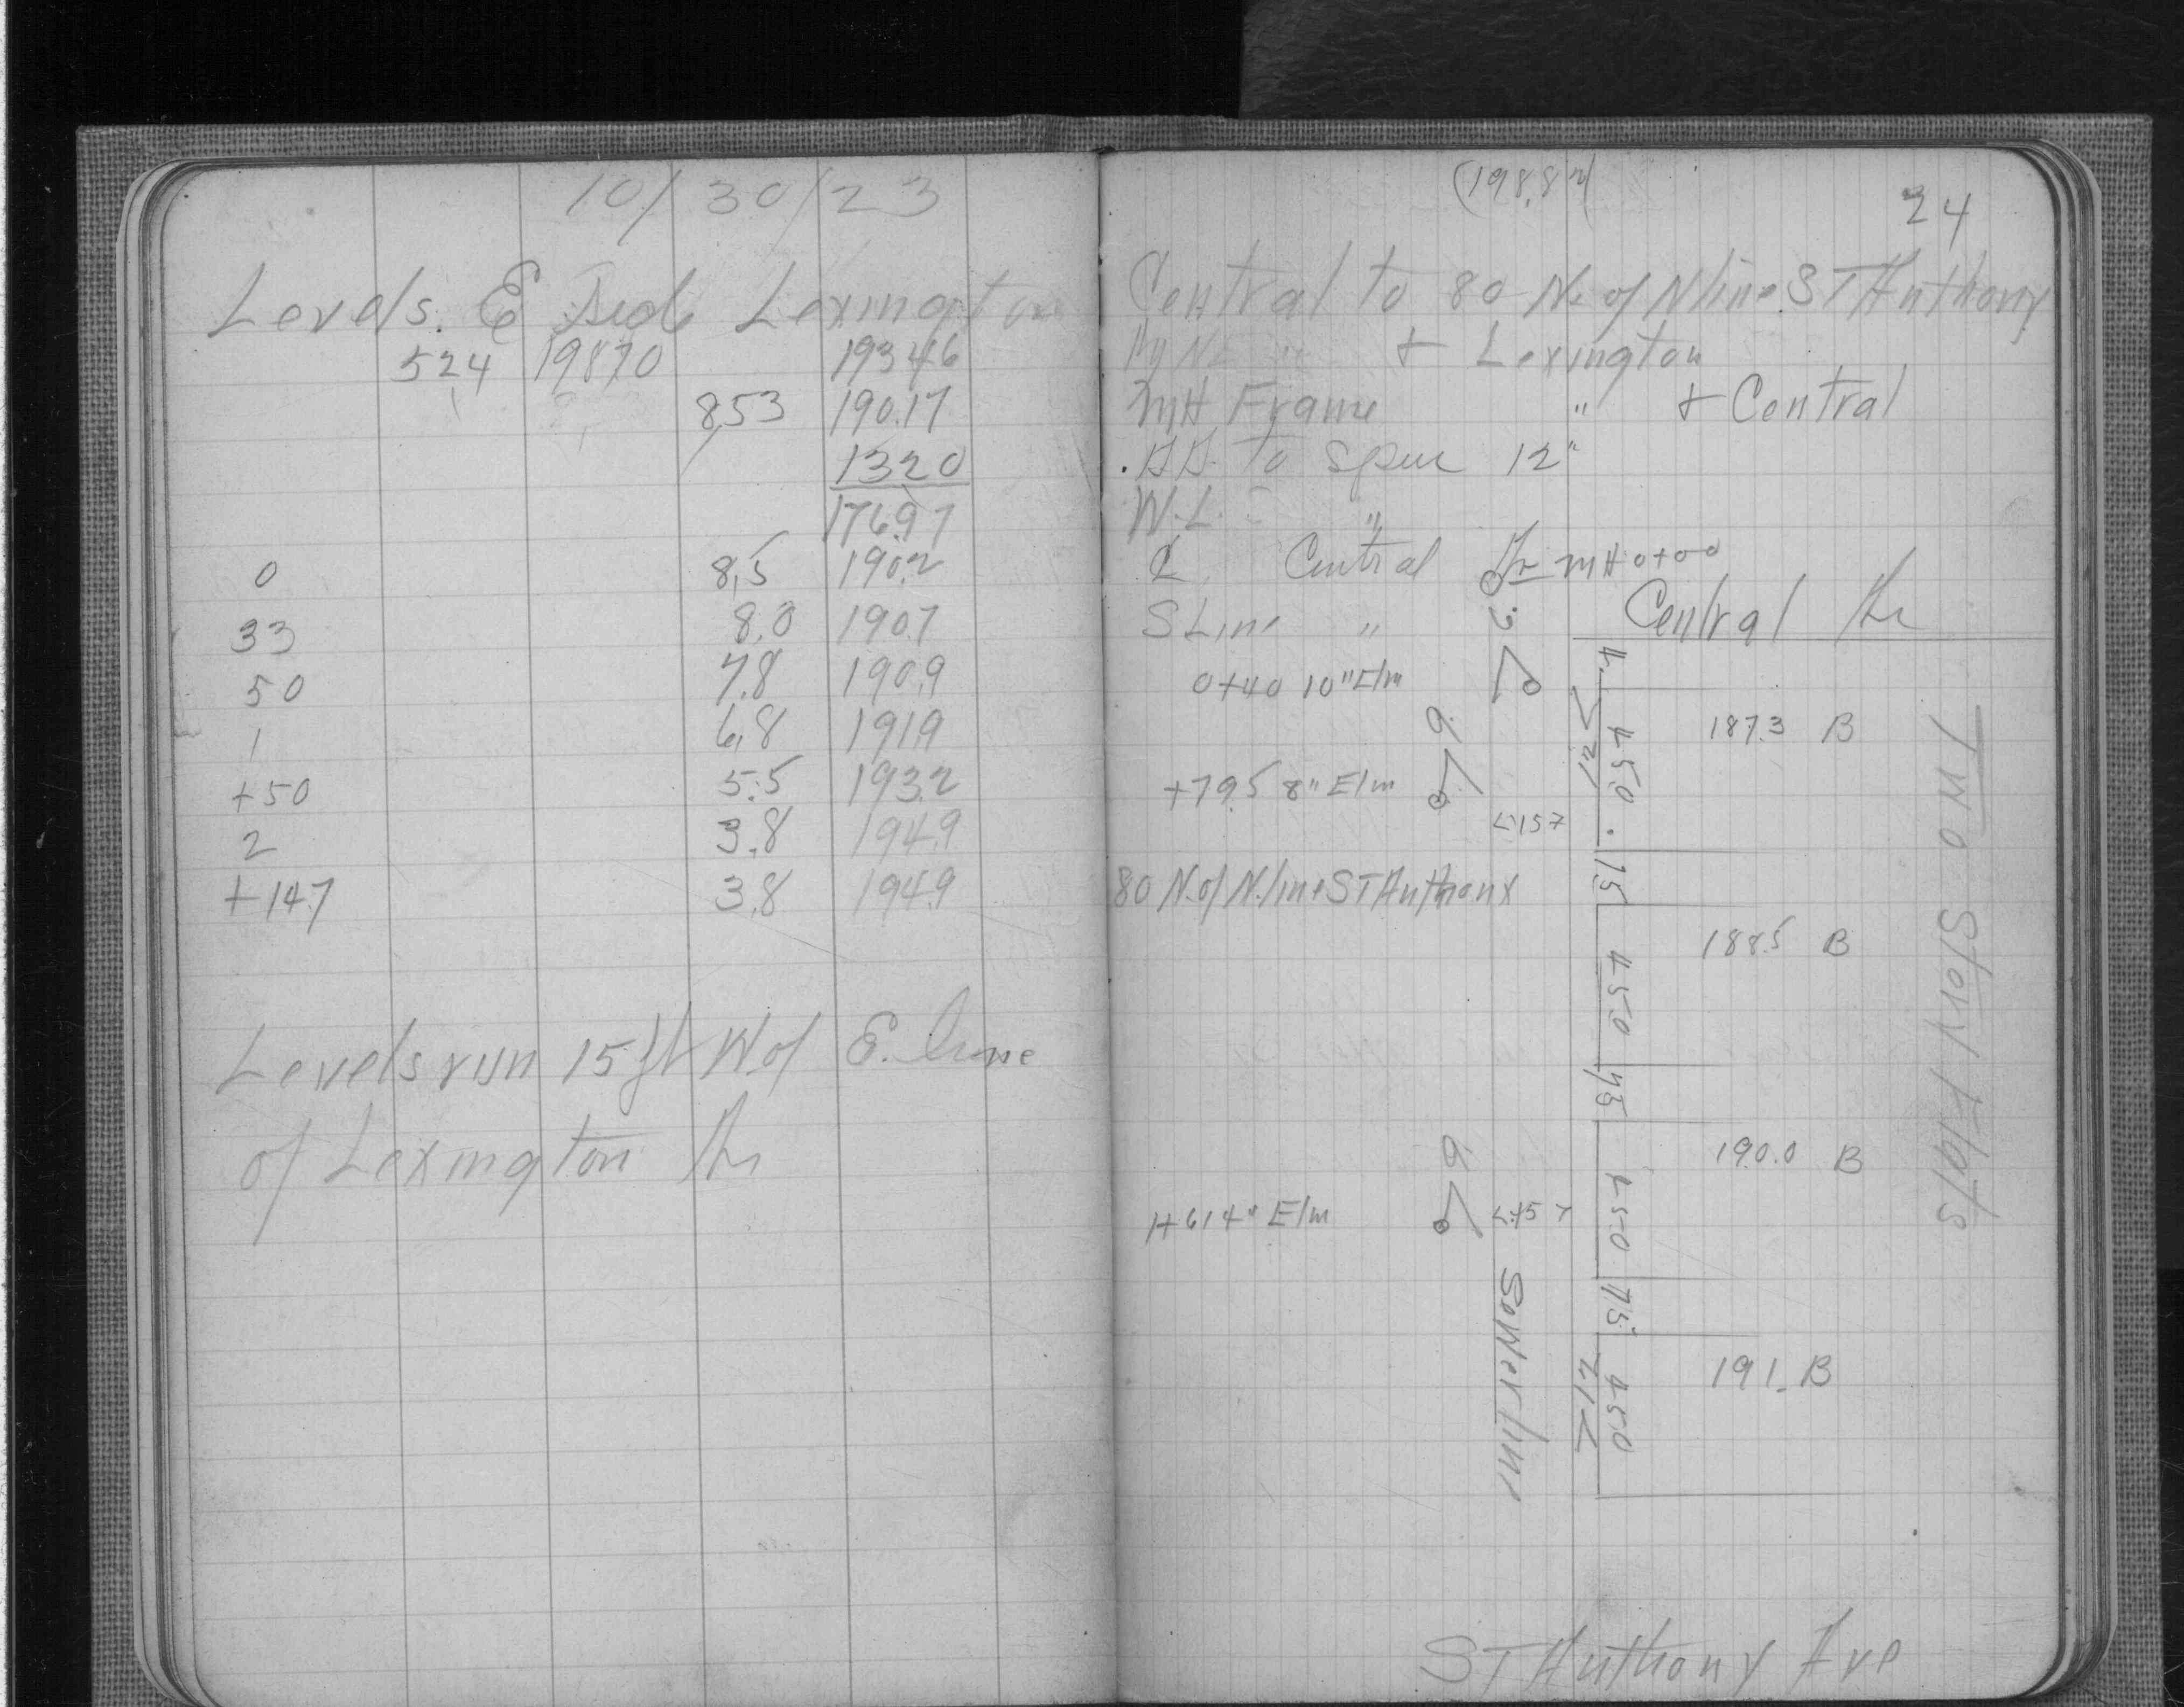 10/30/23
Levels. E Side Lexington
524 198.70 193.46
8.53 190.17
13.20
176.97
0 8.5 190.2
33 8.0 190.7
50 7.8 190.9
1 6.8 191.9
+50 5.5 193.2
2 3.8 194.9
+14.7 3.8 194.9
Levels run 15 ft W of E. Line
of Lexington
(198.8
24
Central to 80 N. of N line ST Anthony
+ Lexington
MH Frame " + Central
To Spur 12"
W.L. "
Central MH 0+00
S Line "
Central
0+40 10" Elm
3
187.3 B
45.0
9
+79.5 8" Elm
<157
7.5
80 N. of N. line ST Anthony
188.5 B
45.0
7.5
190.0 B
45.0
9
1+61 4" Elm
7.5
191. B
45.0
Sewer line
Two Story Flats
ST Anthony Ave